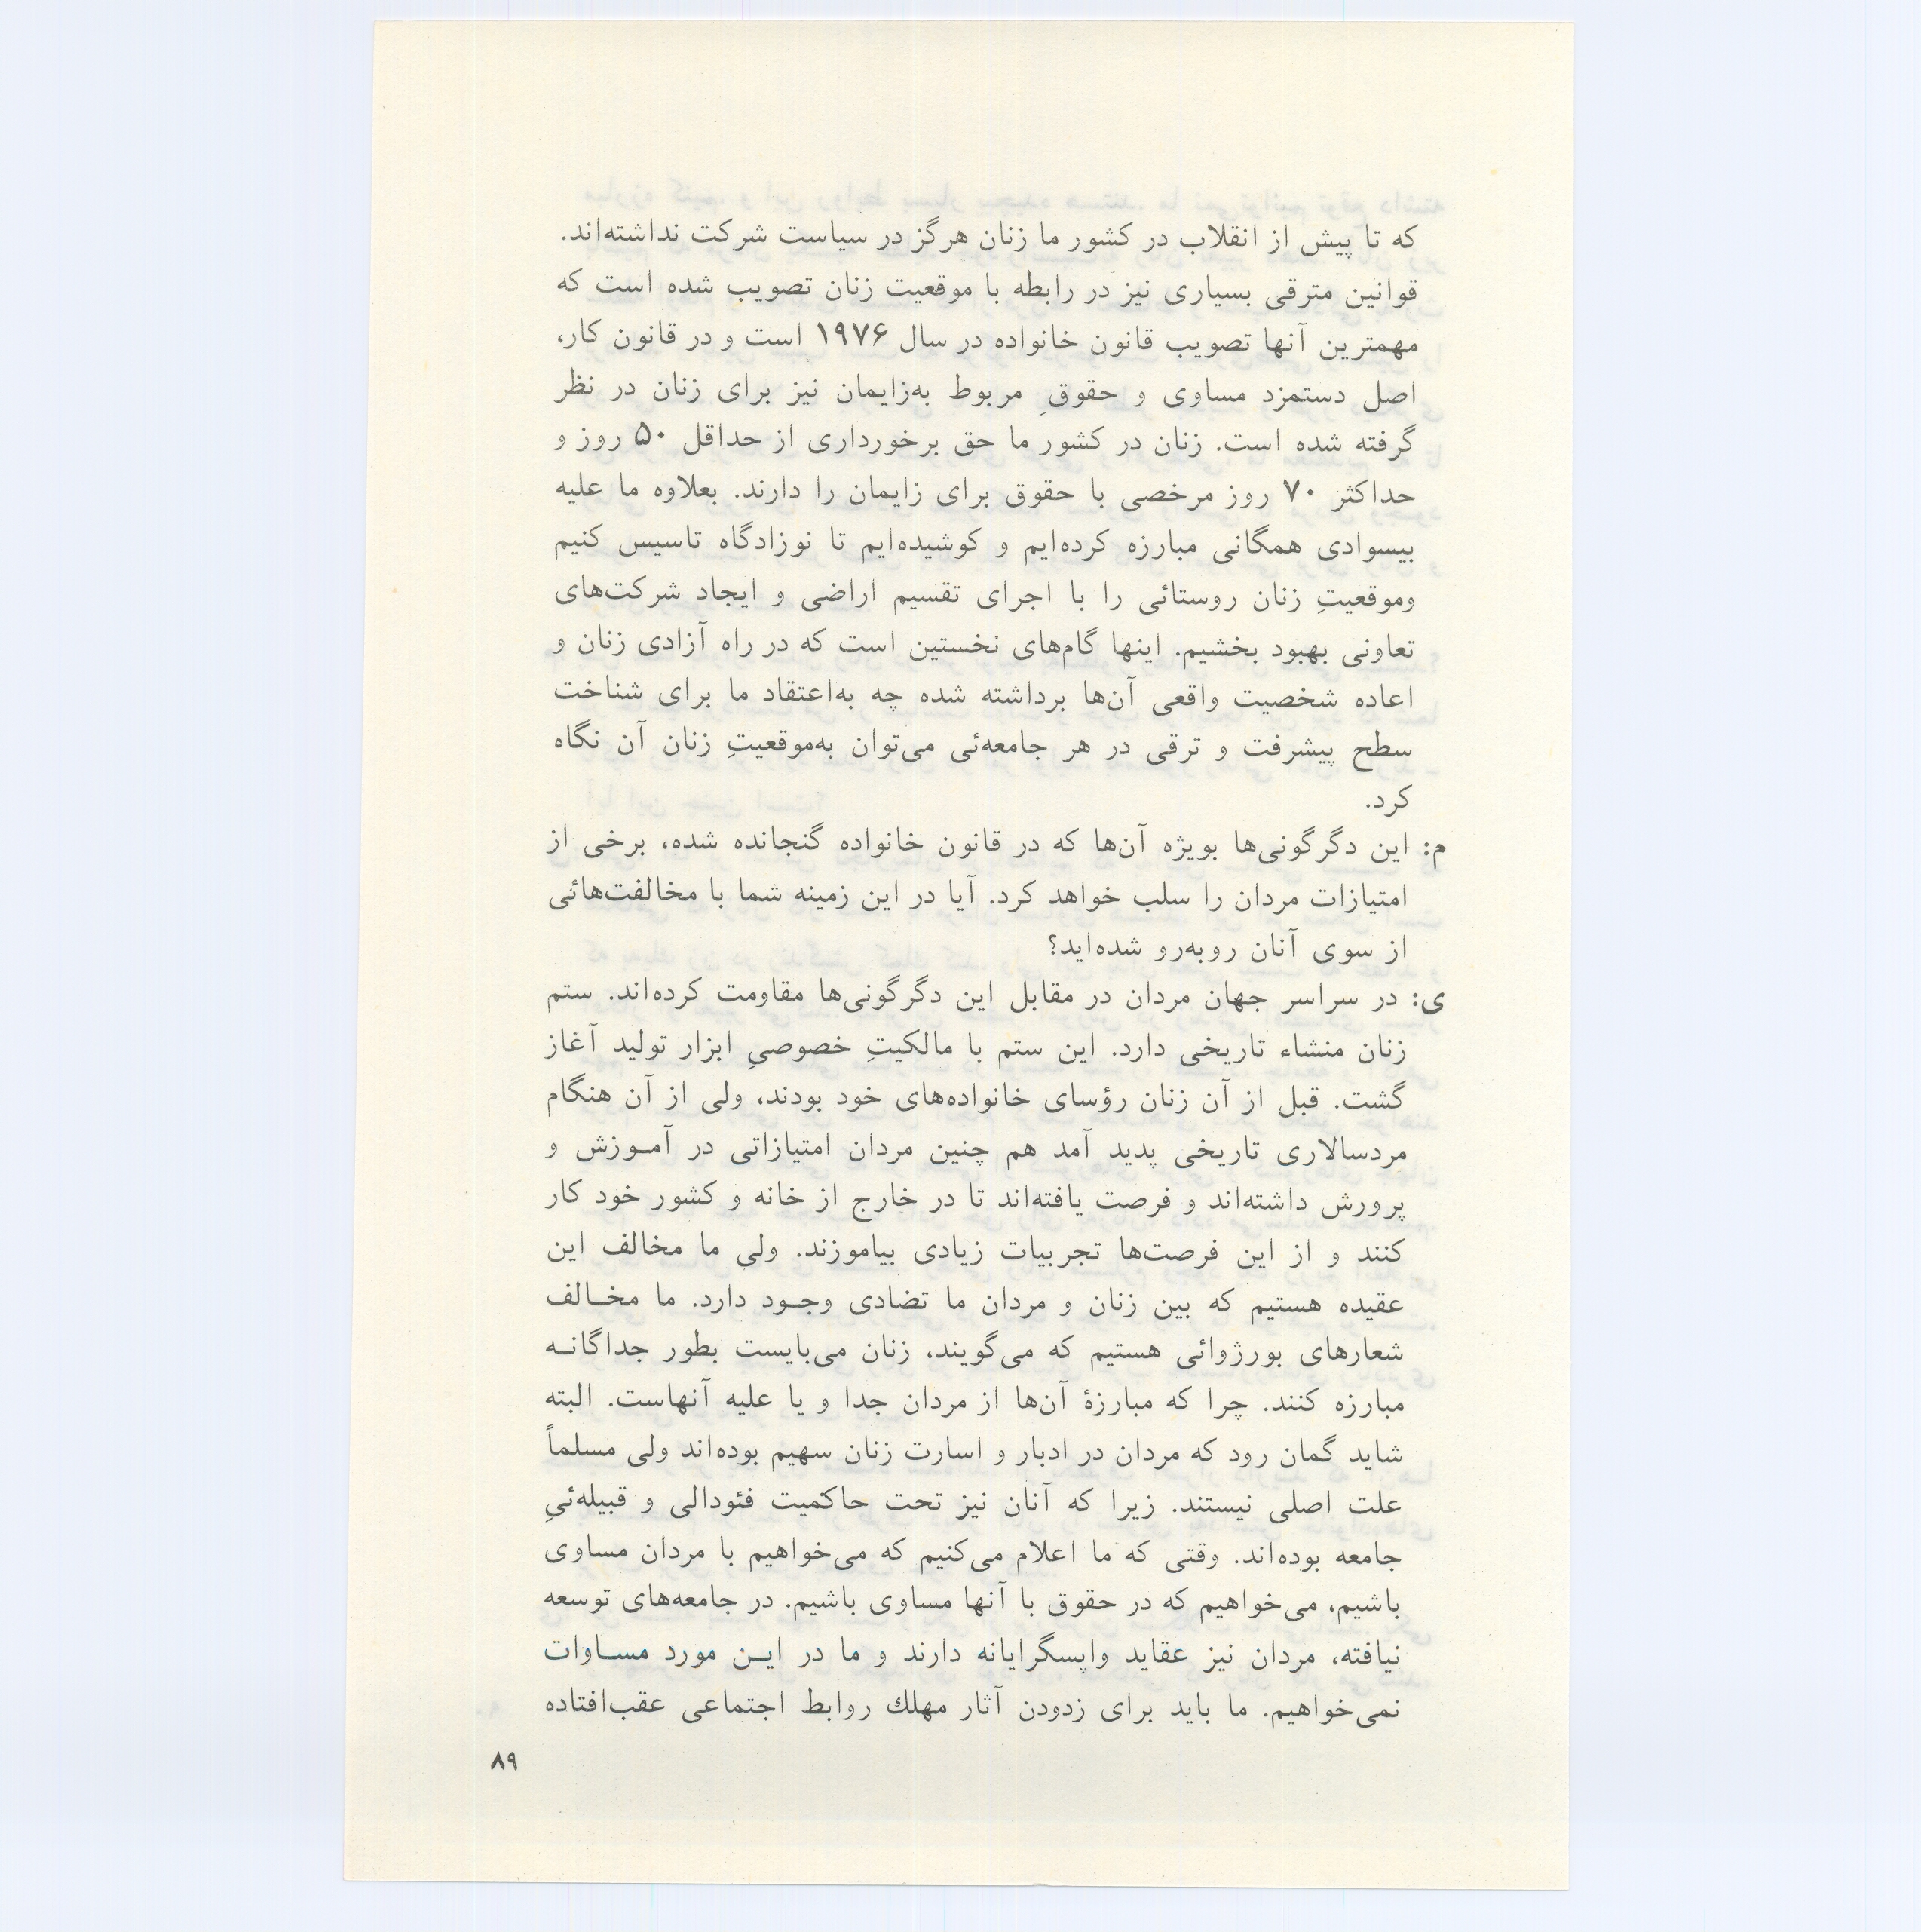 که تا پیش از انقلاب در کشور ما زنان هرگز در سیاست شرکت نداشته‌اند.
قوانین مترقی بسیاری نیز در رابطه با موقعیت زنان تصویب شده است که
مهمترین آنها تصویب قانون خانواده در سال ۱۹۷۶ است و در قانون کار،
اصل دستمزد مساوی و حقوقِ مربوط به‌زایمان نیز برای زنان در نظر
گرفته شده است. زنان در کشور ما حق برخورداری از حداقل ۵۰ روز و
حداکثر ۷۰ روز مرخصی با حقوق برای زایمان را دارند. بعلاوه ما علیه
بیسوادی همگانی مبارزه کرده‌ایم و کوشیده‌ایم تا نوزادگاه تاسیس کنیم
وموقعیتِ زنان روستائی را با اجرای تقسیم اراضی و ایجاد شرکت‌های
تعاونی بهبود بخشیم. اینها گام‌های نخستین است که در راه آزادی زنان و
اعاده شخصیت واقعی آن‌ها برداشته شده چه به‌اعتقاد ما برای شناخت
سطح پیشرفت و ترقی در هر جامعه‌ئی می‌توان به‌موقعیتِ زنان آن نگاه
کرد.
م: این دگرگونی‌ها بویژه آن‌ها که در قانون خانواده گنجانده شده، برخی از
امتیازات مردان را سلب خواهد کرد. آیا در این زمینه شما با مخالفت‌هائی
از سوی آنان روبه‌رو شده‌اید؟
ی: در سراسر جهان مردان در مقابل این دگرگونی‌ها مقاومت کرده‌اند. ستم
زنان منشاء تاریخی دارد. این ستم با مالکیتِ خصوصیِ ابزار تولید آغاز
گشت. قبل از آن زنان رؤسای خانواده‌های خود بودند، ولی از آن هنگام
مردسالاری تاریخی پدید آمد هم چنین مردان امتیازاتی در آمـوزش و
پرورش داشته‌اند و فرصت یافته‌اند تا در خارج از خانه و کشور خود کار
کنند و از این فرصت‌ها تجربیات زیادی بیاموزند. ولی ما مخالف این
عقیده هستیم که بین زنان و مردان ما تضادی وجـود دارد. ما مخـالف
شعارهای بورژوائی هستیم که می‌گویند، زنان می‌بایست بطور جداگانـه
مبارزه کنند. چرا که مبارزهٔ آن‌ها از مردان جدا و یا علیه آنهاست. البته
شاید گمان رود که مردان در ادبار و اسارت زنان سهیم بوده‌اند ولی مسلماً
علت اصلی نیستند. زیرا که آنان نیز تحت حاکمیت فئودالی و قبیله‌ئیِ
جامعه بوده‌اند. وقتی که ما اعلام می‌کنیم که می‌خواهیم با مردان مساوی
باشیم، می‌خواهیم که در حقوق با آنها مساوی باشیم. در جامعه‌های توسعه
نیافته، مردان نیز عقاید واپسگرایانه دارند و ما در ایـن مورد مسـاوات
نمی‌خواهیم. ما باید برای زدودن آثار مهلك روابط اجتماعی عقب‌افتاده
۸۹